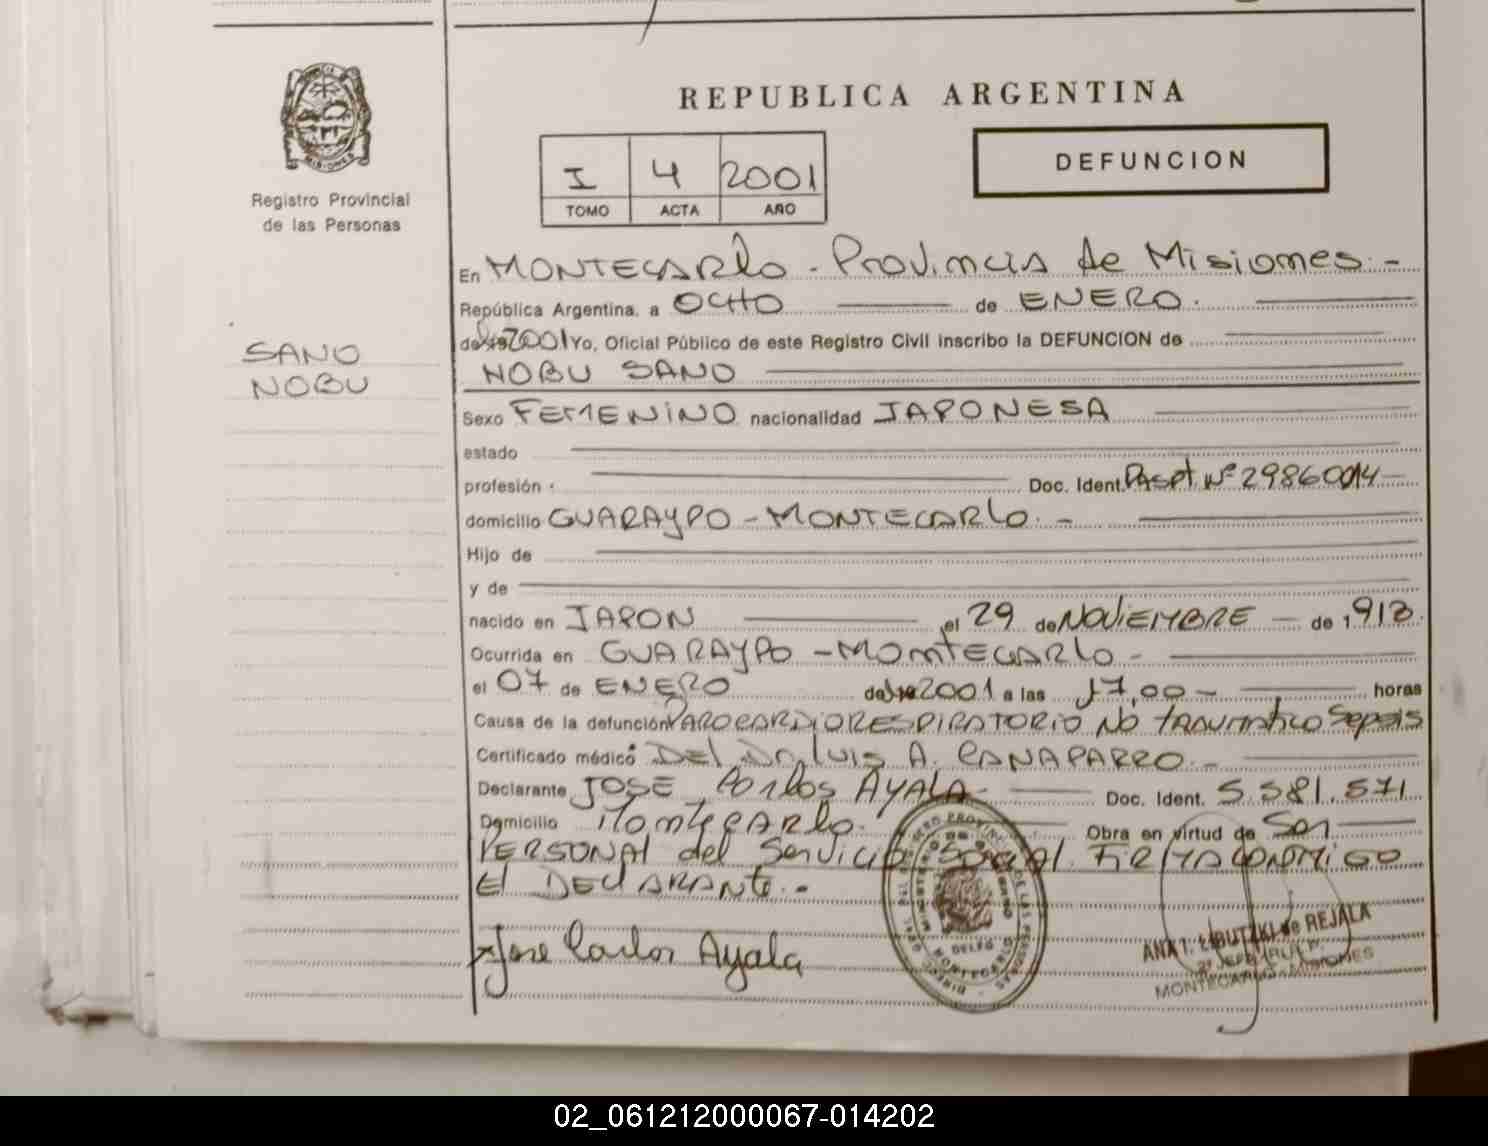 REPUBLICA ARGENTINA
MISIONES
Registro Provincial
de las Personas
I 4 2001
TOMO ACTA AÑO
DEFUNCION
SANO
NOBU
En MONTECARlo - Provincia de Misiones. -
República Argentina, a OCHO de ENERO.
2001 Yo, Oficial Público de este Registro Civil inscribo la DEFUNCION de
NOBU SANO
Sexo FEMENINO nacionalidad JAPONESA
estado
profesión Doc. Ident. Paspt Nº 29860014
domicilio GUARAYPO - MONTECARLO. -
Hijo de
y de
nacido en JAPON el 29 de NOVIEMBRE de 1.913.
Ocurrida en GUARAYPO - MONTECARLO -
el 07 de ENERO 2001 a las 17,00 - horas
Causa de la defunción PAROCARDIORESPIRATORIO NO TRAUMATICO Sepsis
Certificado médico DEL Dr. luis A. CANAPARRO. -
Declarante JOSE Carlos AYALA - Doc. Ident. 5.581.571
Domicilio MontecARlo. Obra en virtud de Ser
PERSONAl del Servicio Social. FIRMA CONMIGO
El DEClARANTE. -
Jose Carlos Ayala
ANA I. LABUTZKI de REJALA
MONTECARLO - MISIONES
02_061212000067-014202